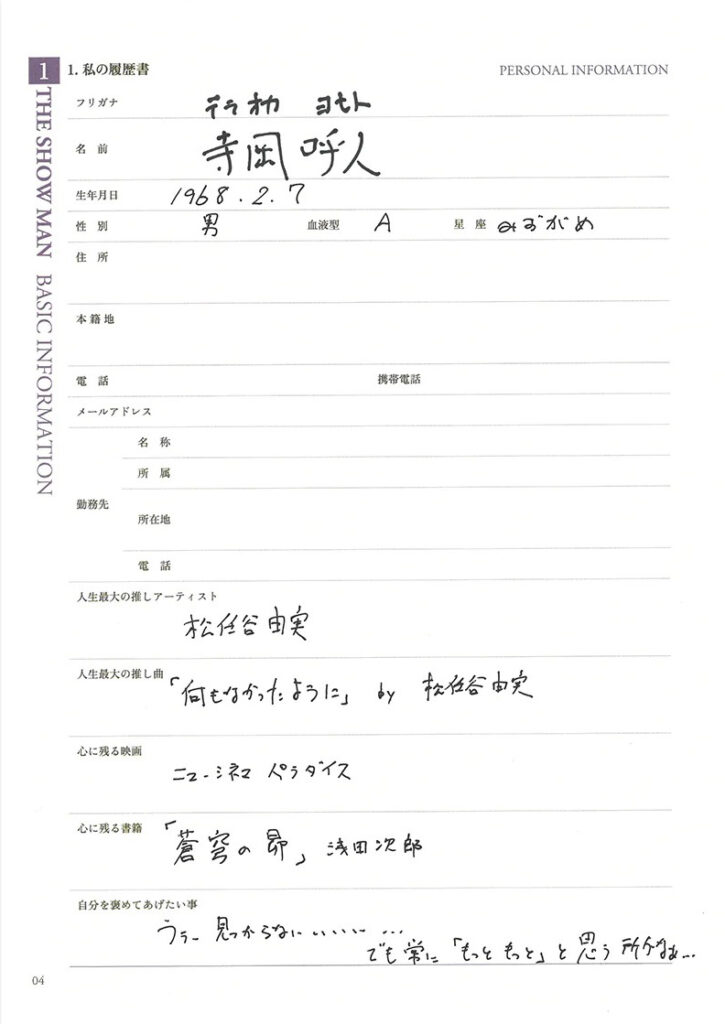 1
1. 私の履歴書
PERSONAL INFORMATION
THE SHOW MAN BASIC INFORMATION
フリガナ テラオカ ヨヒト
名前 寺岡 呼人
生年月日 1968.2.7
性別 男 血液型 A 星座 みずがめ
住所
本籍地
電話 携帯電話
メールアドレス
勤務先
名称
所属
所在地
電話
人生最大の推しアーティスト
松任谷由実
人生最大の推し曲
「何もなかったように」 by 松任谷由実
心に残る映画
ニュー・シネマ パラダイス
心に残る書籍
「蒼穹の昴」 浅田次郎
自分を褒めてあげたい事
うぅー 見つからないいいいい…
でも常に「もっともっと」と思う所かなぁ…
04